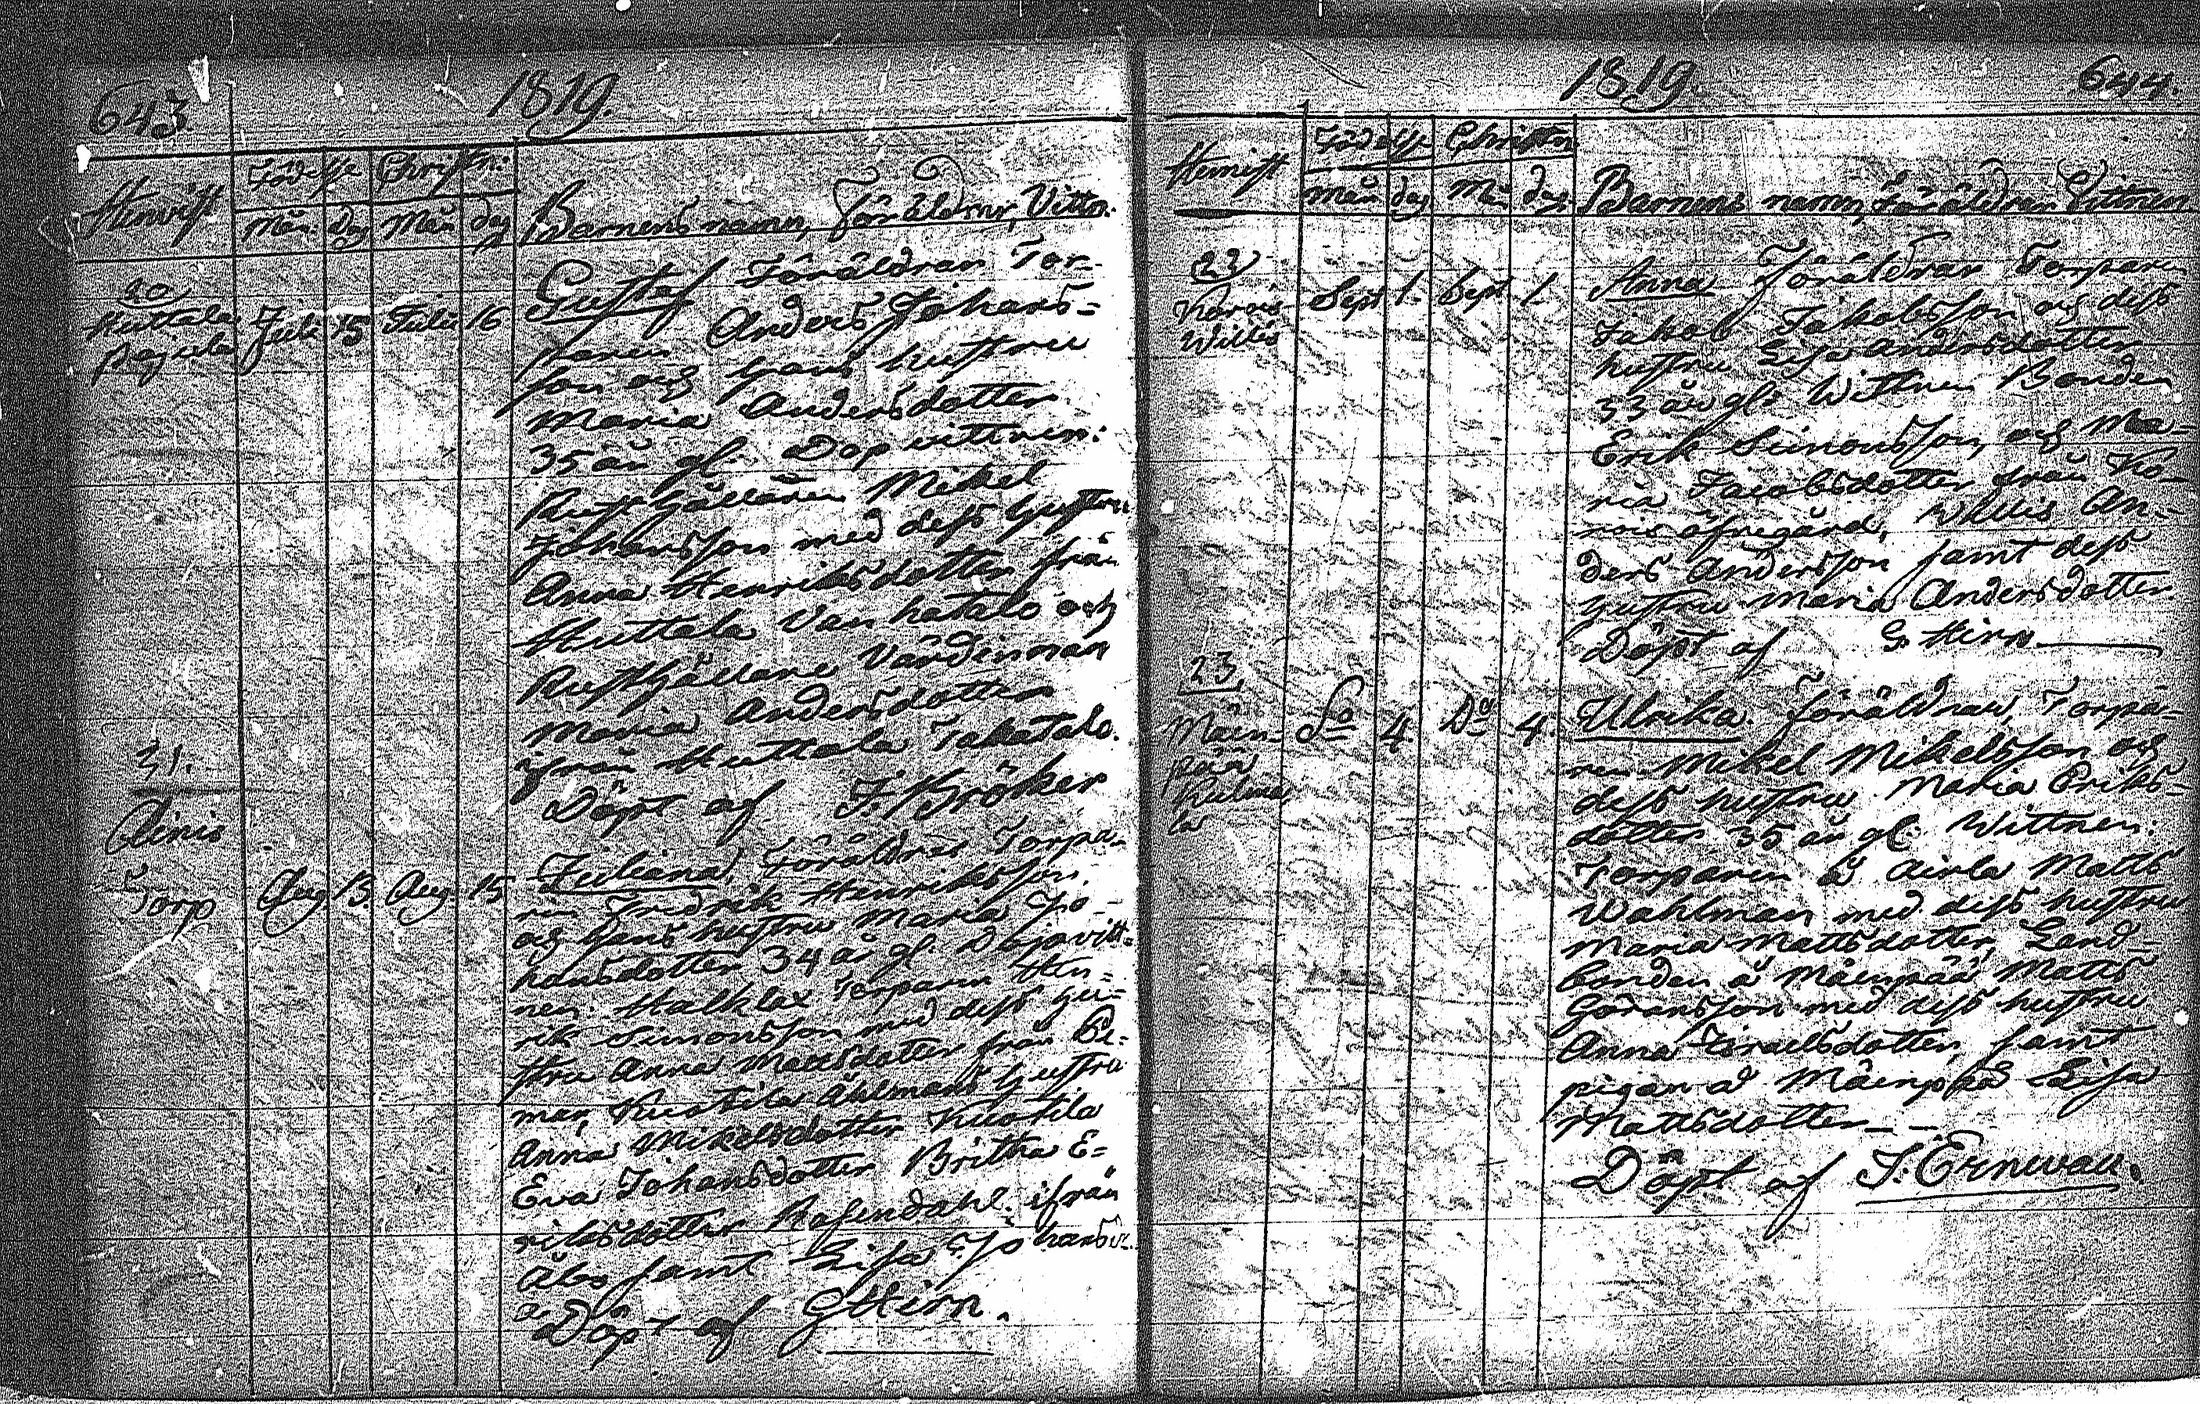 643.
1819.
Hemvist
Födelse
Christn:
Mån.
dag
Mån
dag
Barnens namn, Föräldrar, Vittn.
20
Huttala
Juli 15 Juli 16
Gustaf Föräldrar Tor-
paren Anders Johans-
son och hans hustru
Maria Andersdotter
35 år gl. Dopvittnen:
Rusthållaren Mikel
Johansson med dess hustru
Anna Henriksdotter från
Huttala Vanhatalo och
Rusthållare Värdinnan
Maria Andersdotter
ifrån Huttala Takatalo.
Döpt af F. Bröker
21.
Torp
Aug 13. Aug. 15
Juliana, Föräldrar Torpa-
ren Fredrik Henriksson
och hans hustru Maria Jo-
hansdotter 34 år gl. Dopvitt-
nen: Halklax Torparn Hen-
rik Simonsson med dess hu-
stru Anna Mattsdotter från
Kustila Åhlmans hustru
Anna Mikelsdotter Kustila
Eva Johansdotter Britha E-
riksdotter Rosendahl ifrån
Åbo samt Lisa Johansd.
Döpt af G Hirn.
1819.
644.
Hemvist
Födelse
Christn
Mån
dag
Mån
dag.
Barnens namn, Föräldrar Vittnen
22
Karois
Willis
Sept 1. Sept 1.
Anna Föräldrar Torparen
Jakob Jakobsson och dess
hustru Lisa Andersdotter
33 år gl. Wittnen Bonden
Erik Simonsson, och Ma-
ria Jacobsdotter från Ka-
rois öfregård, Willis An-
ders Andersson samt dess
hustru Maria Andersdotter
Döpt af G. Hirn
23
Mäen-
pää
Kulma
la
Do 4 Do 4.
Ulrika. föräldrar, Torpa-
ren Mikel Mikelsson och
dess hustru Maria Eriks-
dotter 35 år gl. Wittnen:
Torparen å Airla Matts
Wahlman med dess hustru
Maria Mattsdotter, Land-
bonden å Mäenpää Matts
Göransson med dess hustru
Anna Israelsdotter, samt
pigan å Mäenpää Lisa
Mattsdotter
Döpt af J. Ernwall.